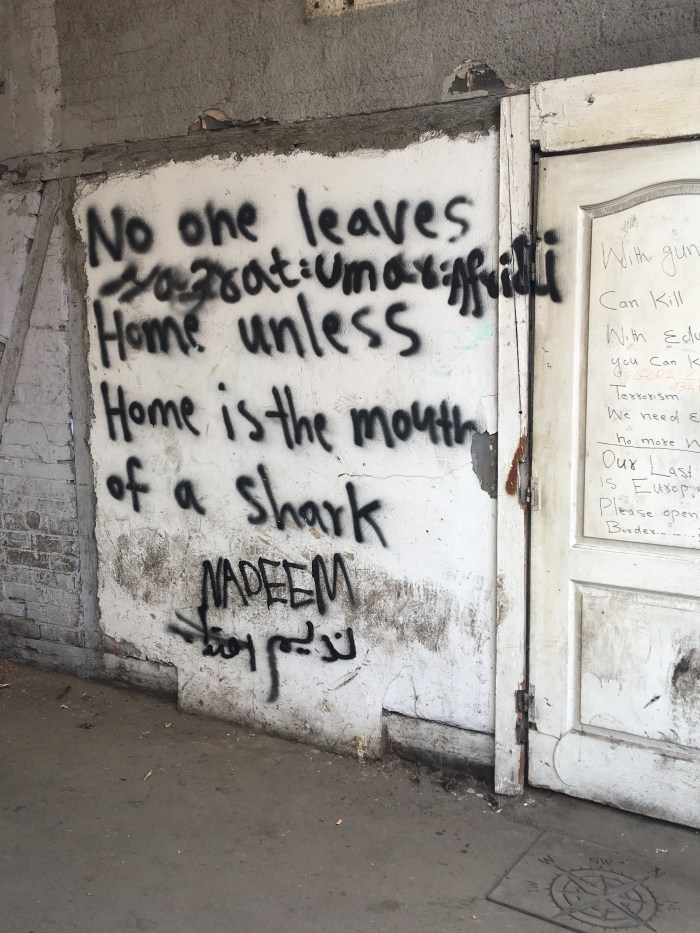 No one leaves
Hazrat:Umar:Afridi
Home unless
Home is the mouth
of a shark
NADEEM
ندیم
With gun
Can Kill
With Edu
you can K
Terrorism
We need E
no more W
Our Last
is Europ
Please open
Border....
W
NW